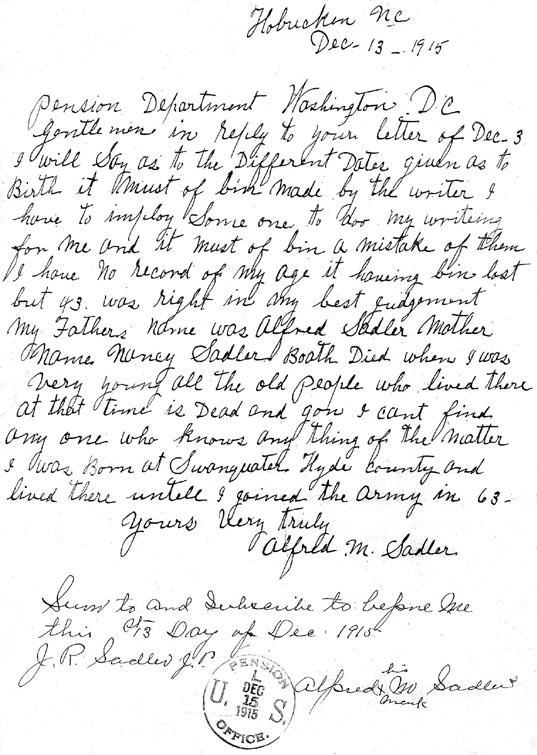 Hobucken NC
Dec - 13 - 1915
Pension Department Washington DC
Gentlemen in reply to your letter of Dec - 3
I will Say as to the Different Dates given as to
Birth it Must of bin made by the writer I
have to imploy Some one to doo my writeing
for me and it must of bin a mistake of them
I have no record of my age it haveing bin lost
but 43. was right in my best judgement
My Fathers name was Alfred Sadler Mother
Name Nancy Sadler Boath Died when I was
very young all the old People who lived there
at that time is Dead and gon I cant find
any one who knows any thing of the Matter
I was Born at Swanquater Hyde county and
lived there untell I joined the Army in 63 -
Yours Very truly
Alfred M. Sadler
Swrn to and Subscribe to before Me
this 13 Day of Dec. 1915
J. R. Sadler J.P.
his
Alfred x M Sadler
mark
PENSION
L
DEC
15
1915
U. S.
OFFICE.